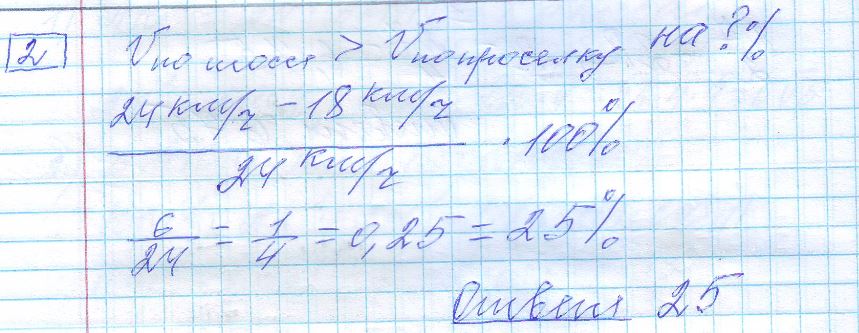 2 V по шоссе > V по проселку на ? %
24 км/ч - 18 км/ч / 24 км/ч · 100%
6/24 = 1/4 = 0,25 = 25%
Ответ 25